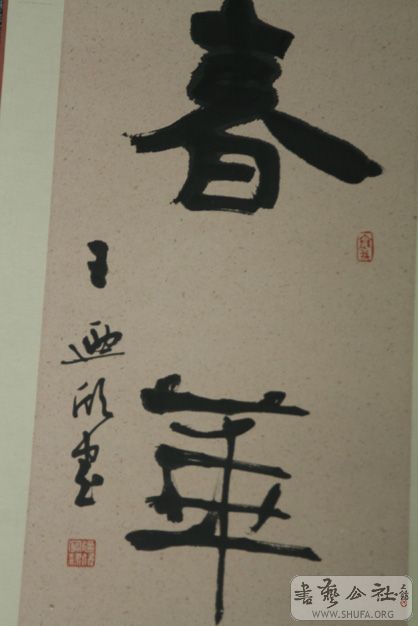 春華
王
書
書藝公社
WWW.SHUFA.ORG